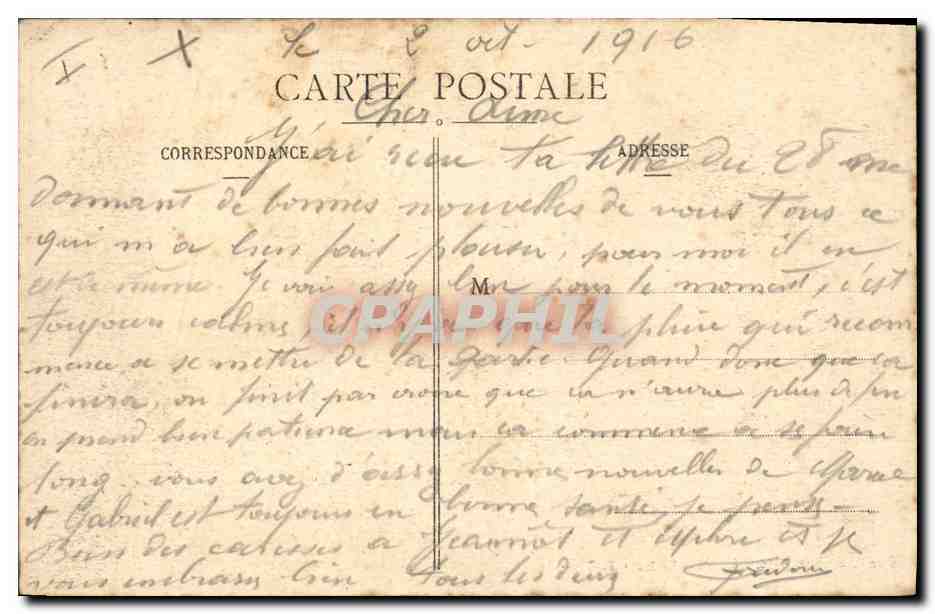 X X le 2 oct. 1916
CARTE POSTALE
Cher Aime
CORRESPONDANCE
ADRESSE
J'ai recu ta lettre du 28 me
donnant de bonnes nouvelles de vous tous ce
qui m'a bien fait plaisir, pour moi il en
est de même Je vais assez bien pour le moment, c'est
M
toujours calme, il n'y a que la pluie qui recom
CPAPHIL
mence a se mettre de la partie. Quand donc que ca
finira, on finit par croire que ca n'aura plus de fin
on prend bien patience mais ca commence a se faire
long. vous avez d'assez bonne nouvelles de
et Gabriel est toujours en bonne santé je pense
Bien des caresses a Jeannot et et je
vous embrasse bien tous les deux